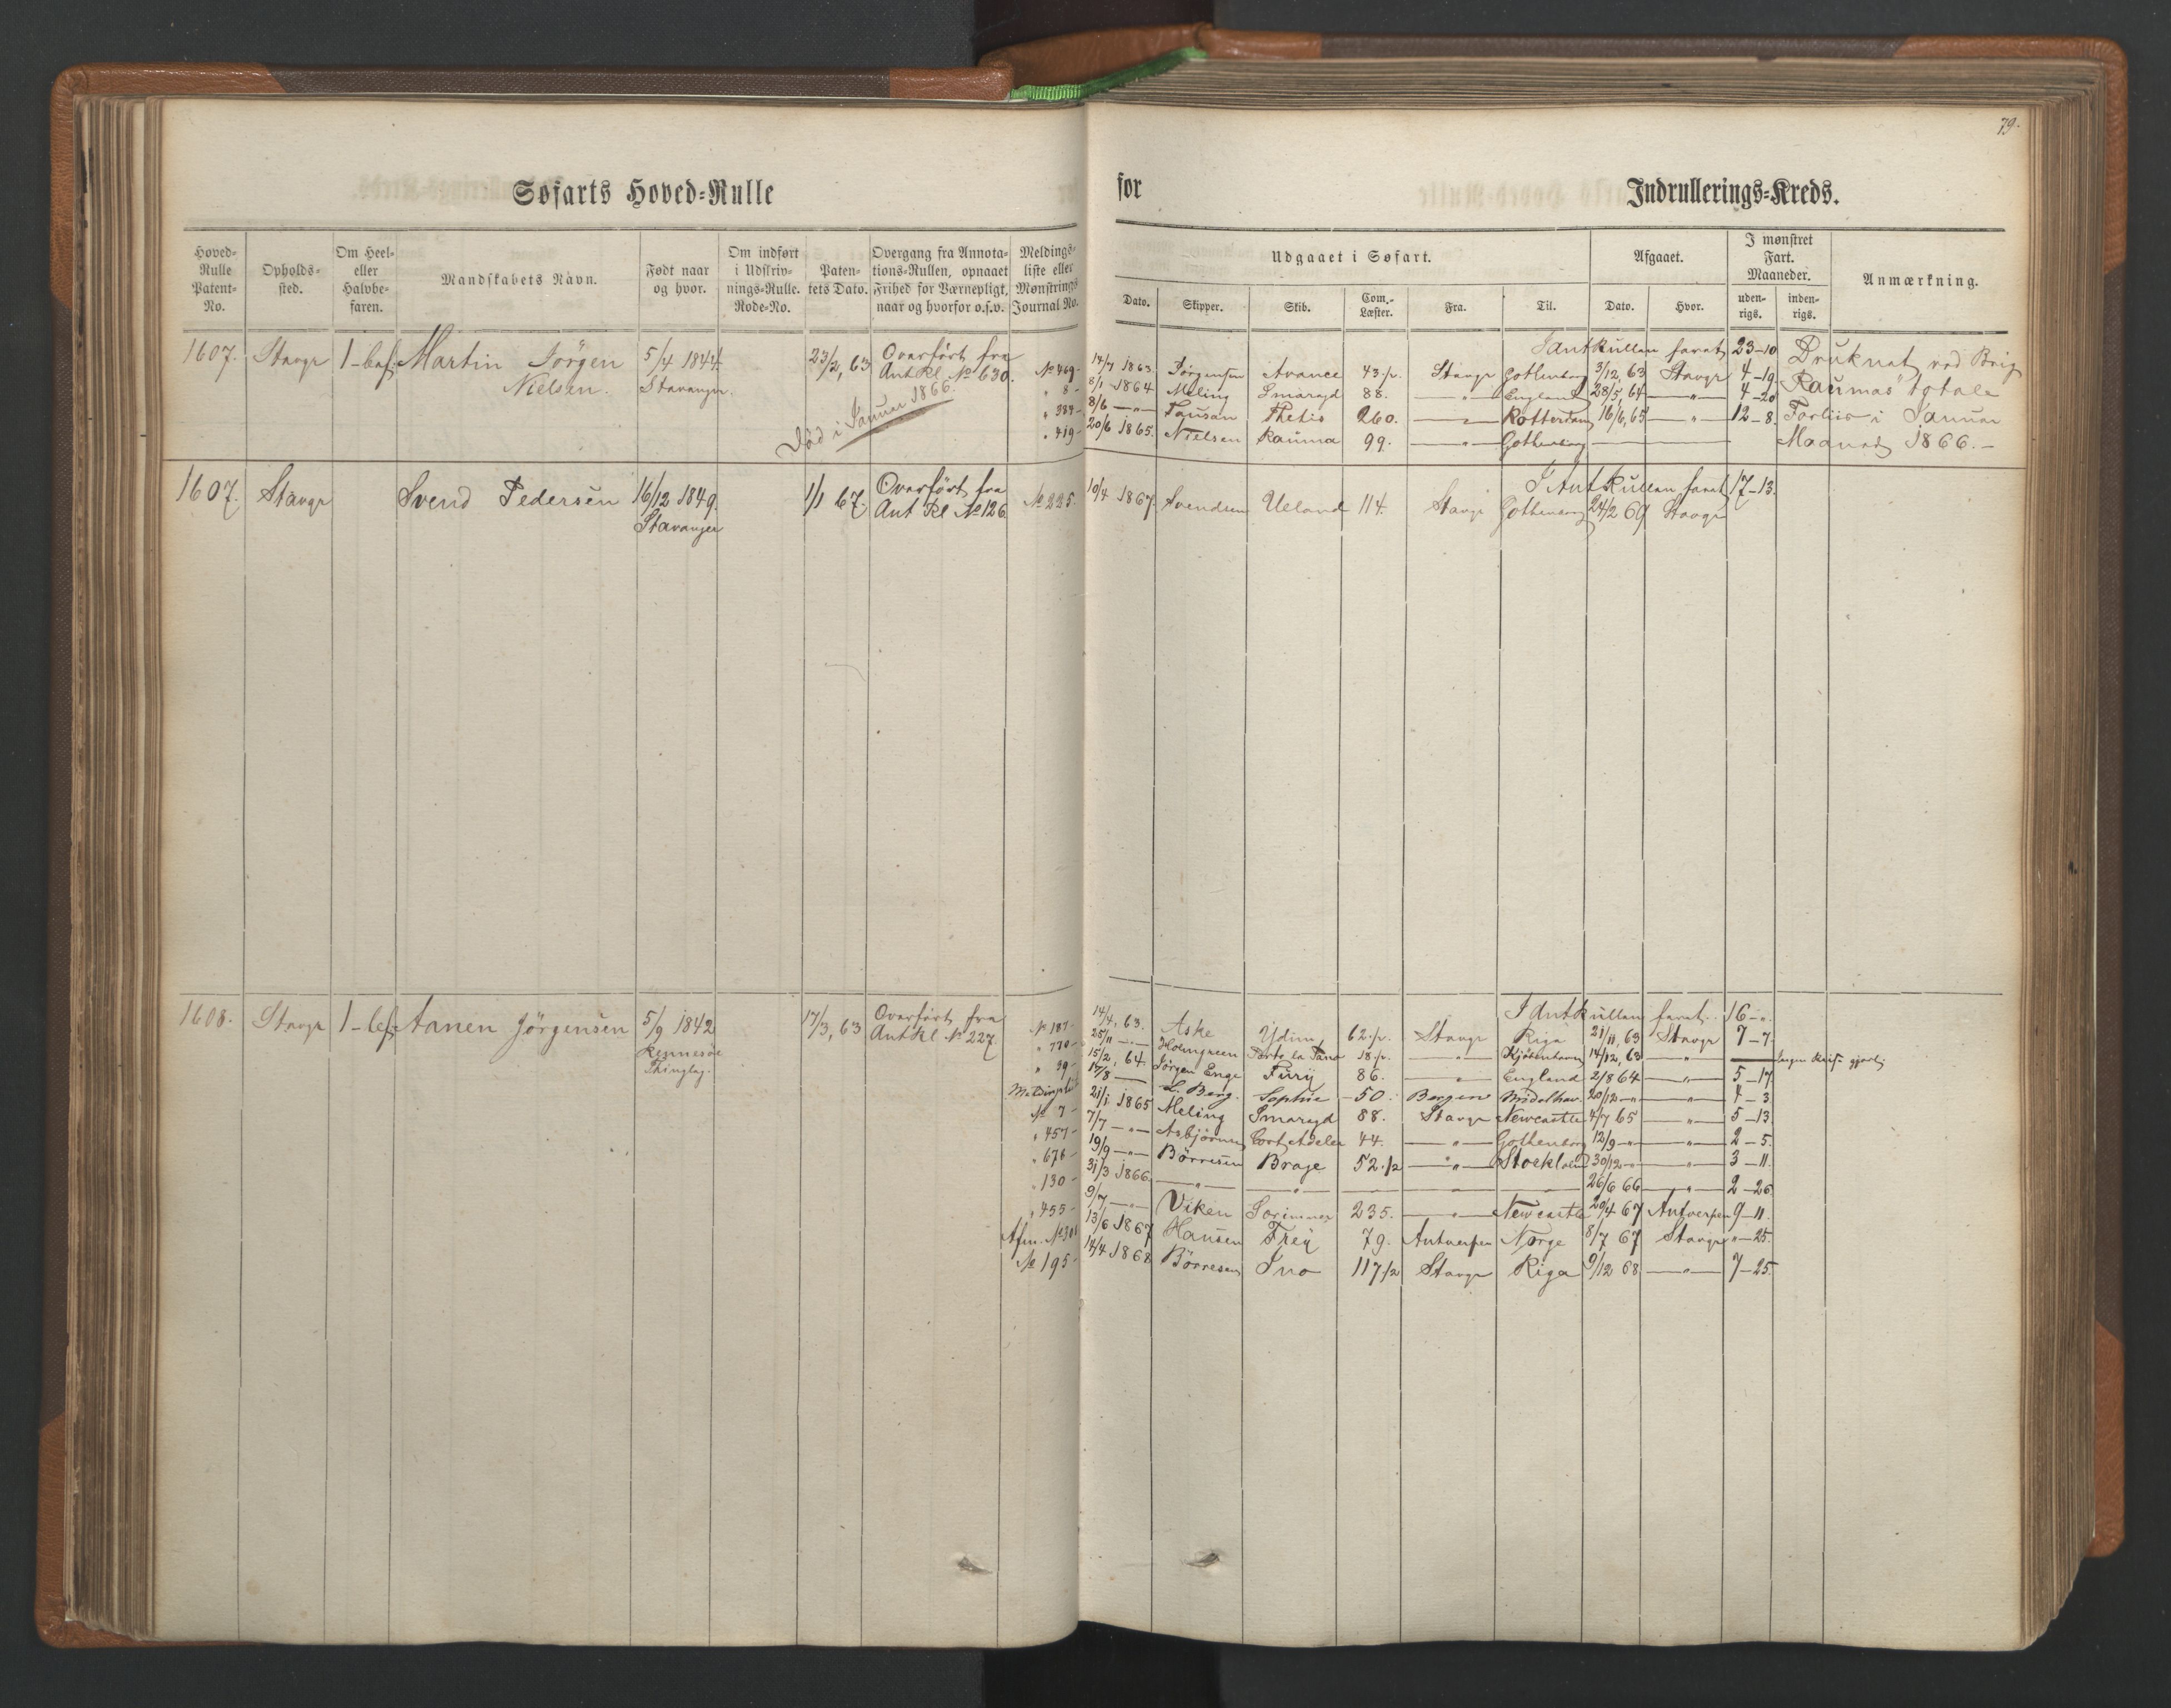 79.
Søfarts Hoved-Rulle
for Indrullerings-Kreds.
Hoved-Rulle Patent-No. Opholds-sted. Om Heel- eller Halvbe-faren. Mandskabets Navn. Født naar og hvor. Om indført i Udskriv-nings-Rulle. Rode-No. Paten-tets Dato. Overgang fra Annota-tions-Rullen, opnaaet Frihed for Værnepligt, naar og hvorfor o.s.v. Meldings-liste eller Mønstrings Journal No.
Udgaaet i Søfart. Afgaaet. I mønstret Fart. Maaneder. Anmærkning.
Dato. Skipper. Skib. Com.-Læster. Fra. Til. Dato. Hvor. uden-rigs. inden-rigs.
1607. Stavgr 1-bef: Martin Jörgen Nielsen. 5/4 1844. Stavanger. 23/2, 63 Overført fra Ant Rl. № 630.
Død i Januar 1866.
I Ant Rullen faret 23-10
№ 469- 14/7 1863. Jörgensen Avance 43.½. Stavgr Gothenborg 3/12, 63 Stavgr 4-19
" 8- 8/1 1864 Meling Smaragd 88. —"— England 28/5, 64 —"— 4-20
" 384- 8/6 —"— Tausan Thetis 260. —"— Rotterdam 16/6, 65 —"— 12-8.
" 419- 20/6 1865. Nielsen Rauma 99. —"— Gothenborg
Druknet ved Brig
"Raumas" totale
Forliis i Januar
Maaned 1866.-
1607. Stavgr Svend Pedersen 16/12 1849. Stavanger 1/1 67. Overført fra Ant Rl № 126
I Ant Rullen faret 17-13.
№ 225. 10/4 1867. Svendsen Ueland 114. Stavgr Gothenborg 24/2 69 Stavgr
1608. Stavgr 1-bef: Aanen Jörgensen 5/9 1842 Rennesøe Thinglag. 17/3, 63 Overført fra Ant Rl № 227.
I Ant Rullen faret. 16-".
№ 187- 14/4, 63. Aske Ydun 62.½. Stavgr Riga 21/11, 63 Stavgr 7-7.
" 770- 25/11 —"— Holmgreen 18.½. —"— Kjöbenhavn 14/12, 63 —"— ——
" 39- 15/2, 64. Jörgen Enge Fury 86. —"— England 2/8 64 —"— 5-17.
17/8 —— L. Berg. Sophie 50. Bergen Middelhav. 20/12 —"— —"— 4-3
№ 7- 21/1 1865 Meling Smaragd 88. Stavgr Newcastle 4/7 65 —"— 5-13
" 457- 7/7 —"— Asbjörnsen Cort Adeler 44. —"— Gothenborg 12/9 —"— —"— 2-5.
" 676- 19/9 —"— Börresen Brage 52.½ —"— Stockholm 30/12 —"— —"— 3-11.
" 130- 31/3 1866. —"— —"— —— —— —— 26/6 66 —"— 2-26.
" 455- 9/7 —"— Viken Sörimner 235. —"— Newcastle 20/4 67 Antwerpen 9-11.
Afm. № 301 13/6 1867 Hansen Frey 79. Antwerpen Norge 8/7 67 Stavgr "-25.
№ 195- 14/4 1868 Börresen Ino 117½ Stavgr Riga 9/12 68 —"— 7-25.